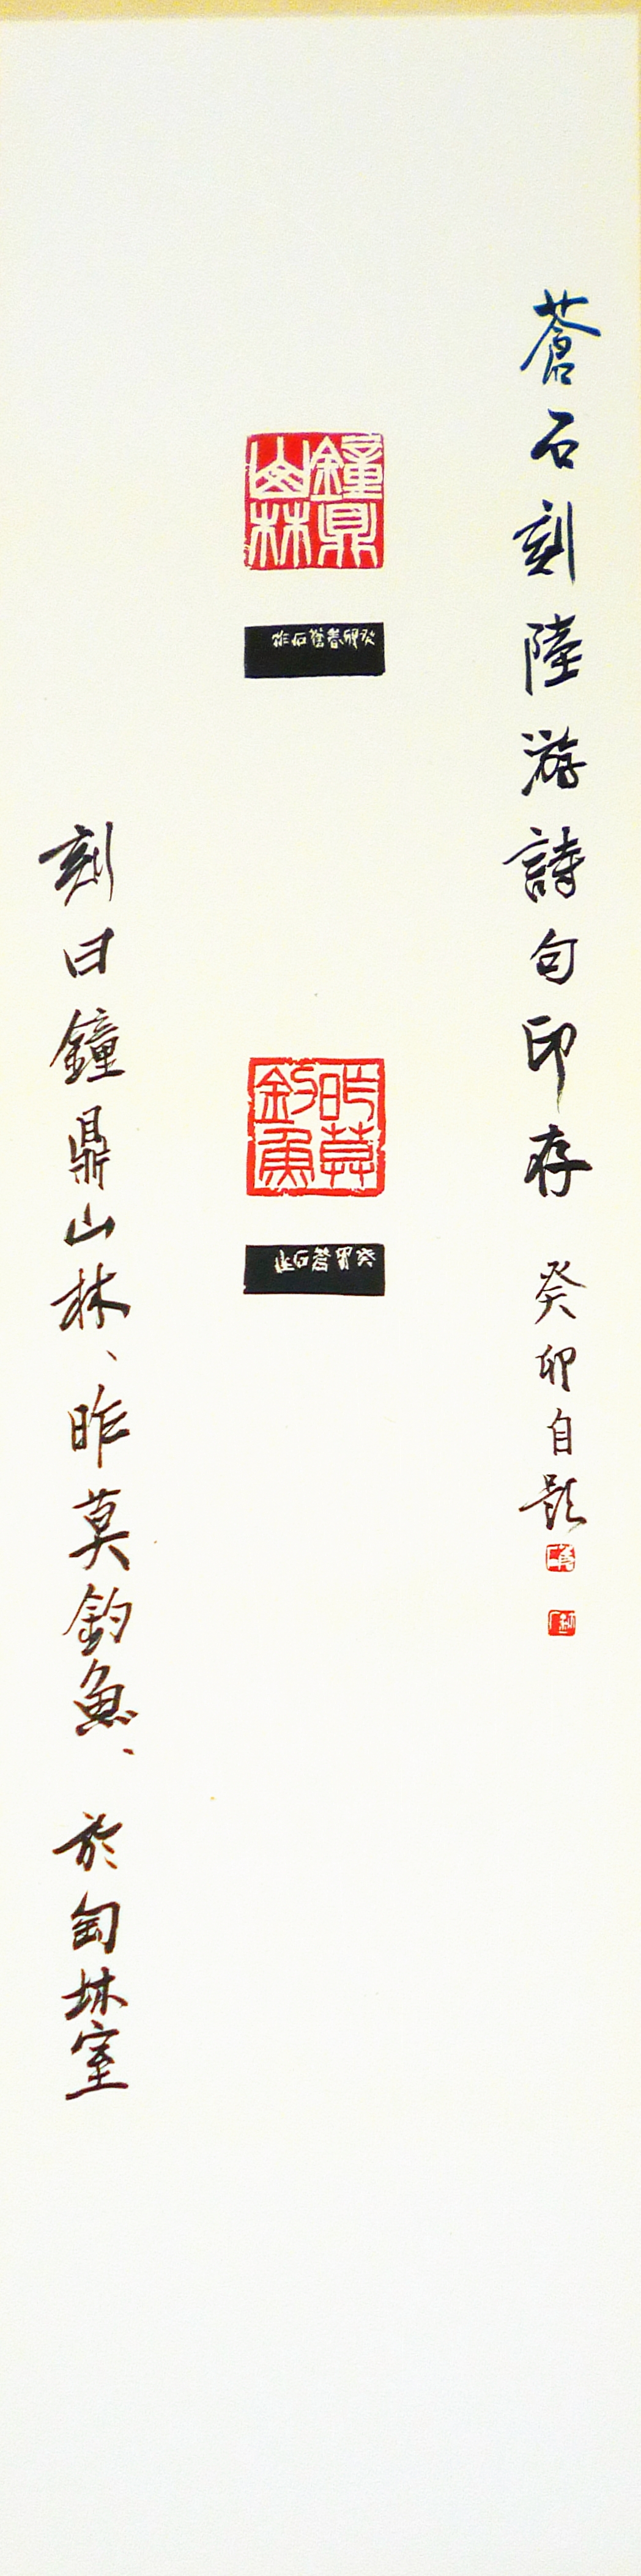 蒼石刻陸游詩句印存 癸卯自題
鐘鼎
山林
癸卯春蒼石作
昨莫
釣魚
癸卯蒼石作
刻曰鐘鼎山林、昨莫釣魚、於匋室